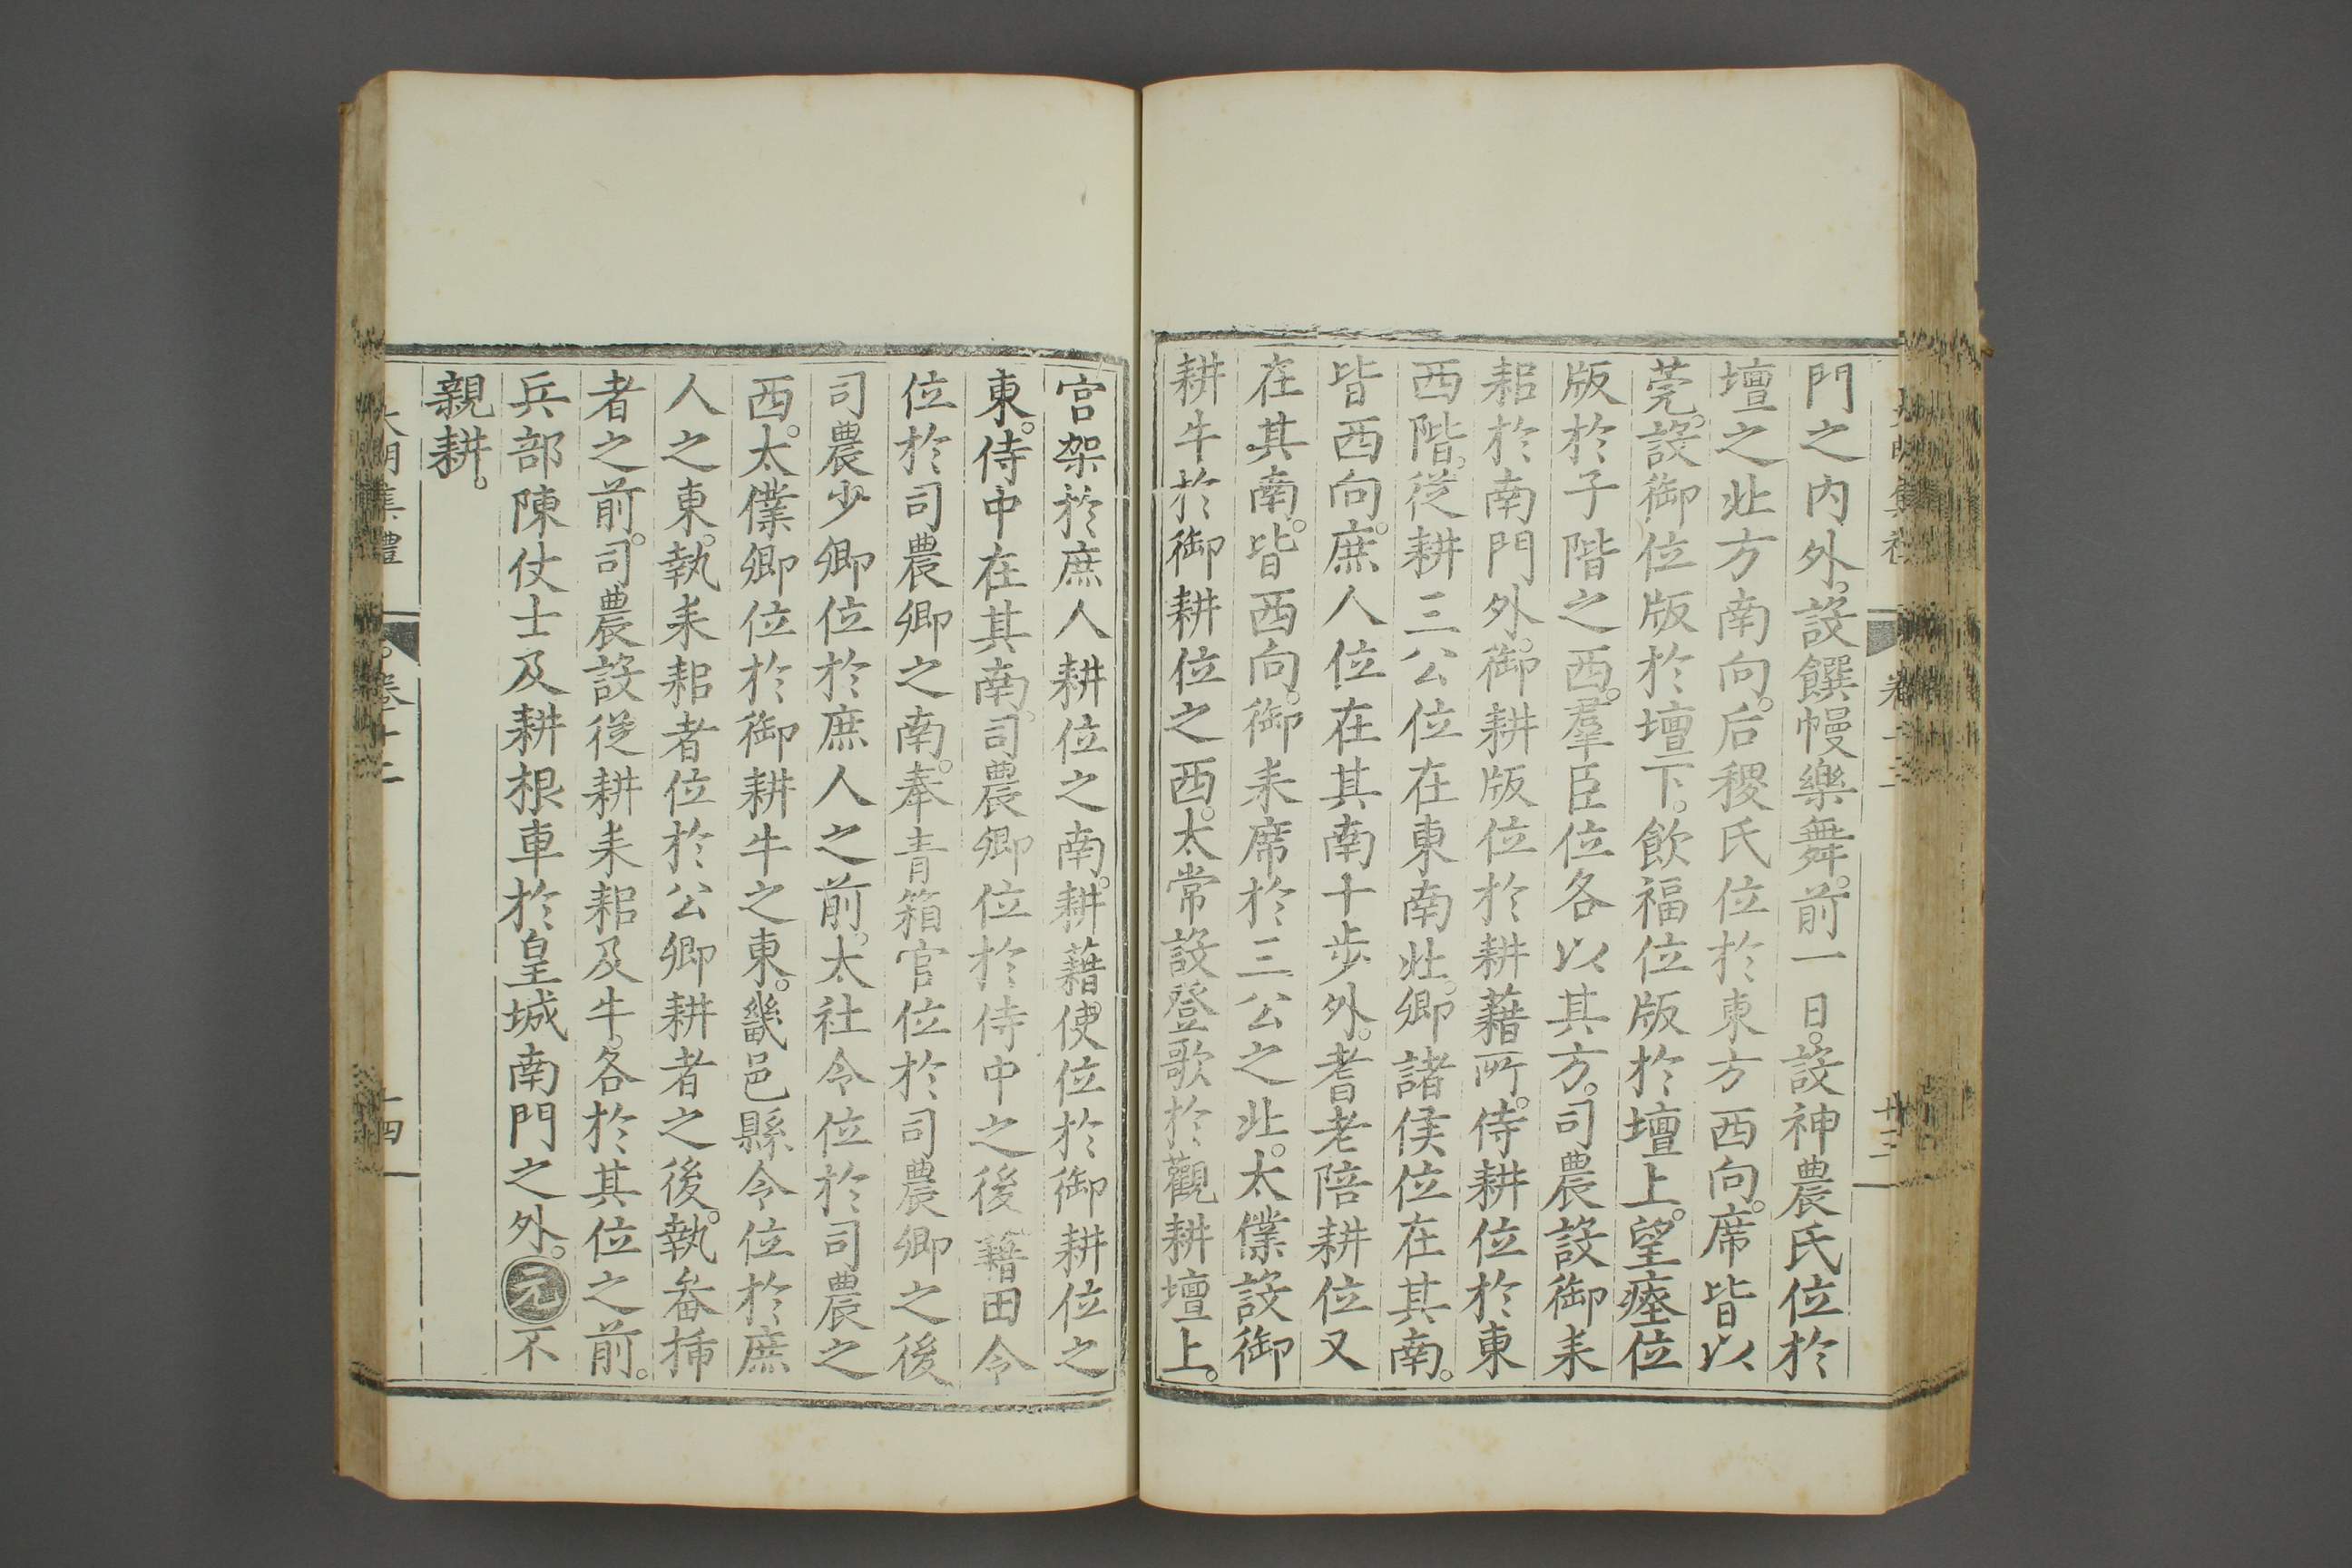 門之内外。設饌幔樂舞。前一日。設神農氏位於
壇之北方南向。后稷氏位於東方西向。席皆以
莞。設御位版於壇下。飲福位版於壇上。望瘞位
版於子階之西。羣臣位各以其方。司農設御耒
耜於南門外。御耕版位於耕藉所。侍耕位於東
西階。從耕三公位在東南北。卿諸侯位在其南。
皆西向。庶人位在其南十步外。耆老陪耕位又
在其南。皆西向。御耒席於三公之北。太僕設御
耕牛於御耕位之西。太常設登歌於觀耕壇上。
宮架於庶人耕位之南。耕藉使位於御耕位之
東。侍中在其南。司農卿位於侍中之後藉田令
位於司農卿之南。奉青箱官位於司農卿之後
司農少卿位於庶人之前。太社令位於司農之
西。太僕卿位於御耕牛之東。畿邑縣令位於庶
人之東。執耒耜者位於公卿耕者之後。執畚揷
者之前。司農設從耕耒耜及牛。各於其位之前。
兵部陳仗士及耕根車於皇城南門之外。元不
親耕。
大明集禮 卷十二 十四